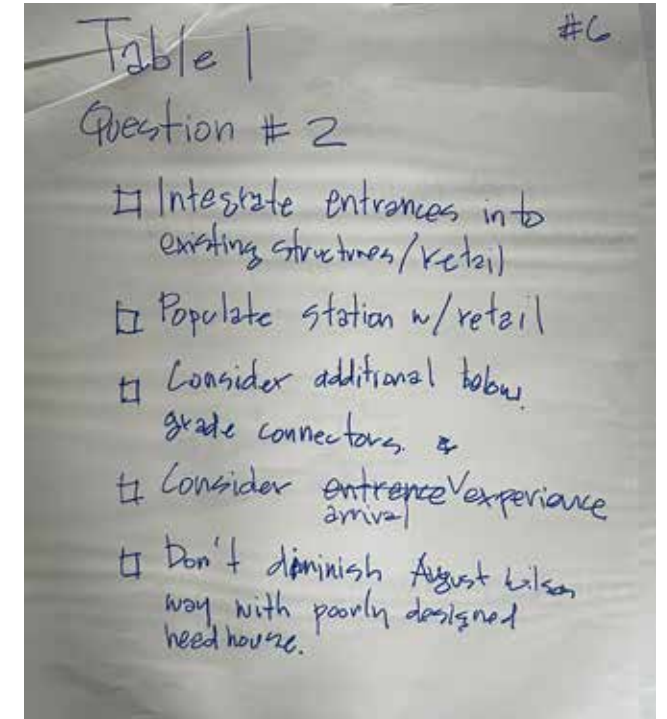 #6
Table 1
Question # 2
□ Integrate entrances into
existing structures/retail
□ Populate station w/retail
□ Consider additional below
grade connectors. &
□ Consider entrence experience
arrival
□ Don't diminish August Wilson
way with poorly designed
head house.